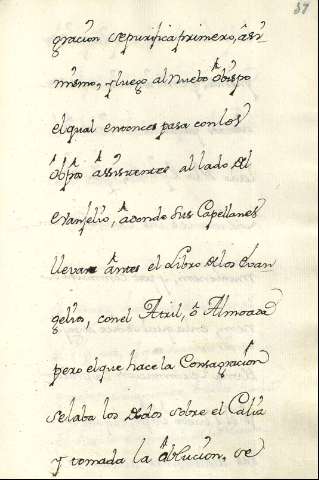 37
gración se purifica primero, â si
mismo, y luego al nuebo Obispo
el qual entonces pasa con los
Obpos assistentes al lado del
Evanjelio, â donde sus Capellanes
llevan ântes el Libro de los Evan
gelios, con el Atril, ô Almoada
pero el que hace la Consagracion
se laba los dedos sobre el Caliz
y tomada la âblucion, se